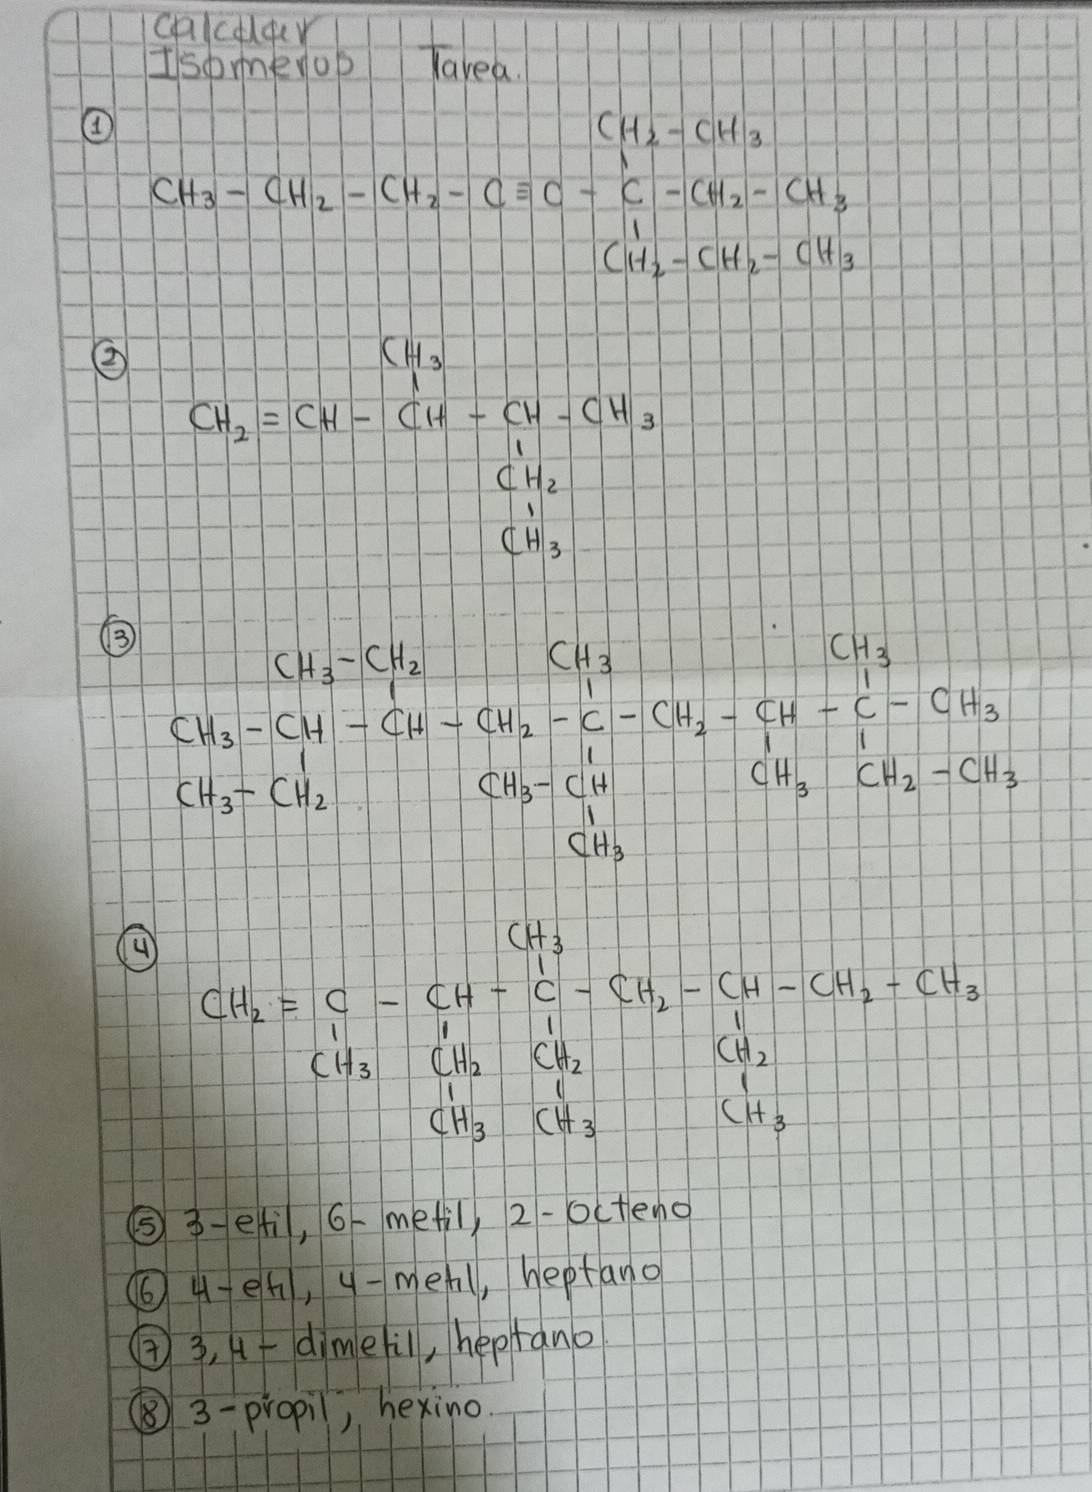 calcular
Isomeros Tarea.
① CH2 - CH3
CH3 - CH2 - CH2 - C ≡ C - C - CH2 - CH3
CH2 - CH2 - CH3
② CH3
CH2 = CH - CH - CH - CH3
CH2
CH3
③ CH3 - CH2 CH3 CH3
CH3 - CH - CH - CH2 - C - CH2 - CH - C - CH3
CH3 - CH2 CH3 - CH CH3 CH2 - CH3
CH3
④ CH3
CH2 = C - CH - C - CH2 - CH - CH2 - CH3
CH3 CH2 CH2 CH2
CH3 CH3 CH3
⑤ 3-etil, 6-metil, 2-octeno
⑥ 4-etil, 4-metil, heptano
⑦ 3,4-dimetil, heptano
⑧ 3-propil, hexino.